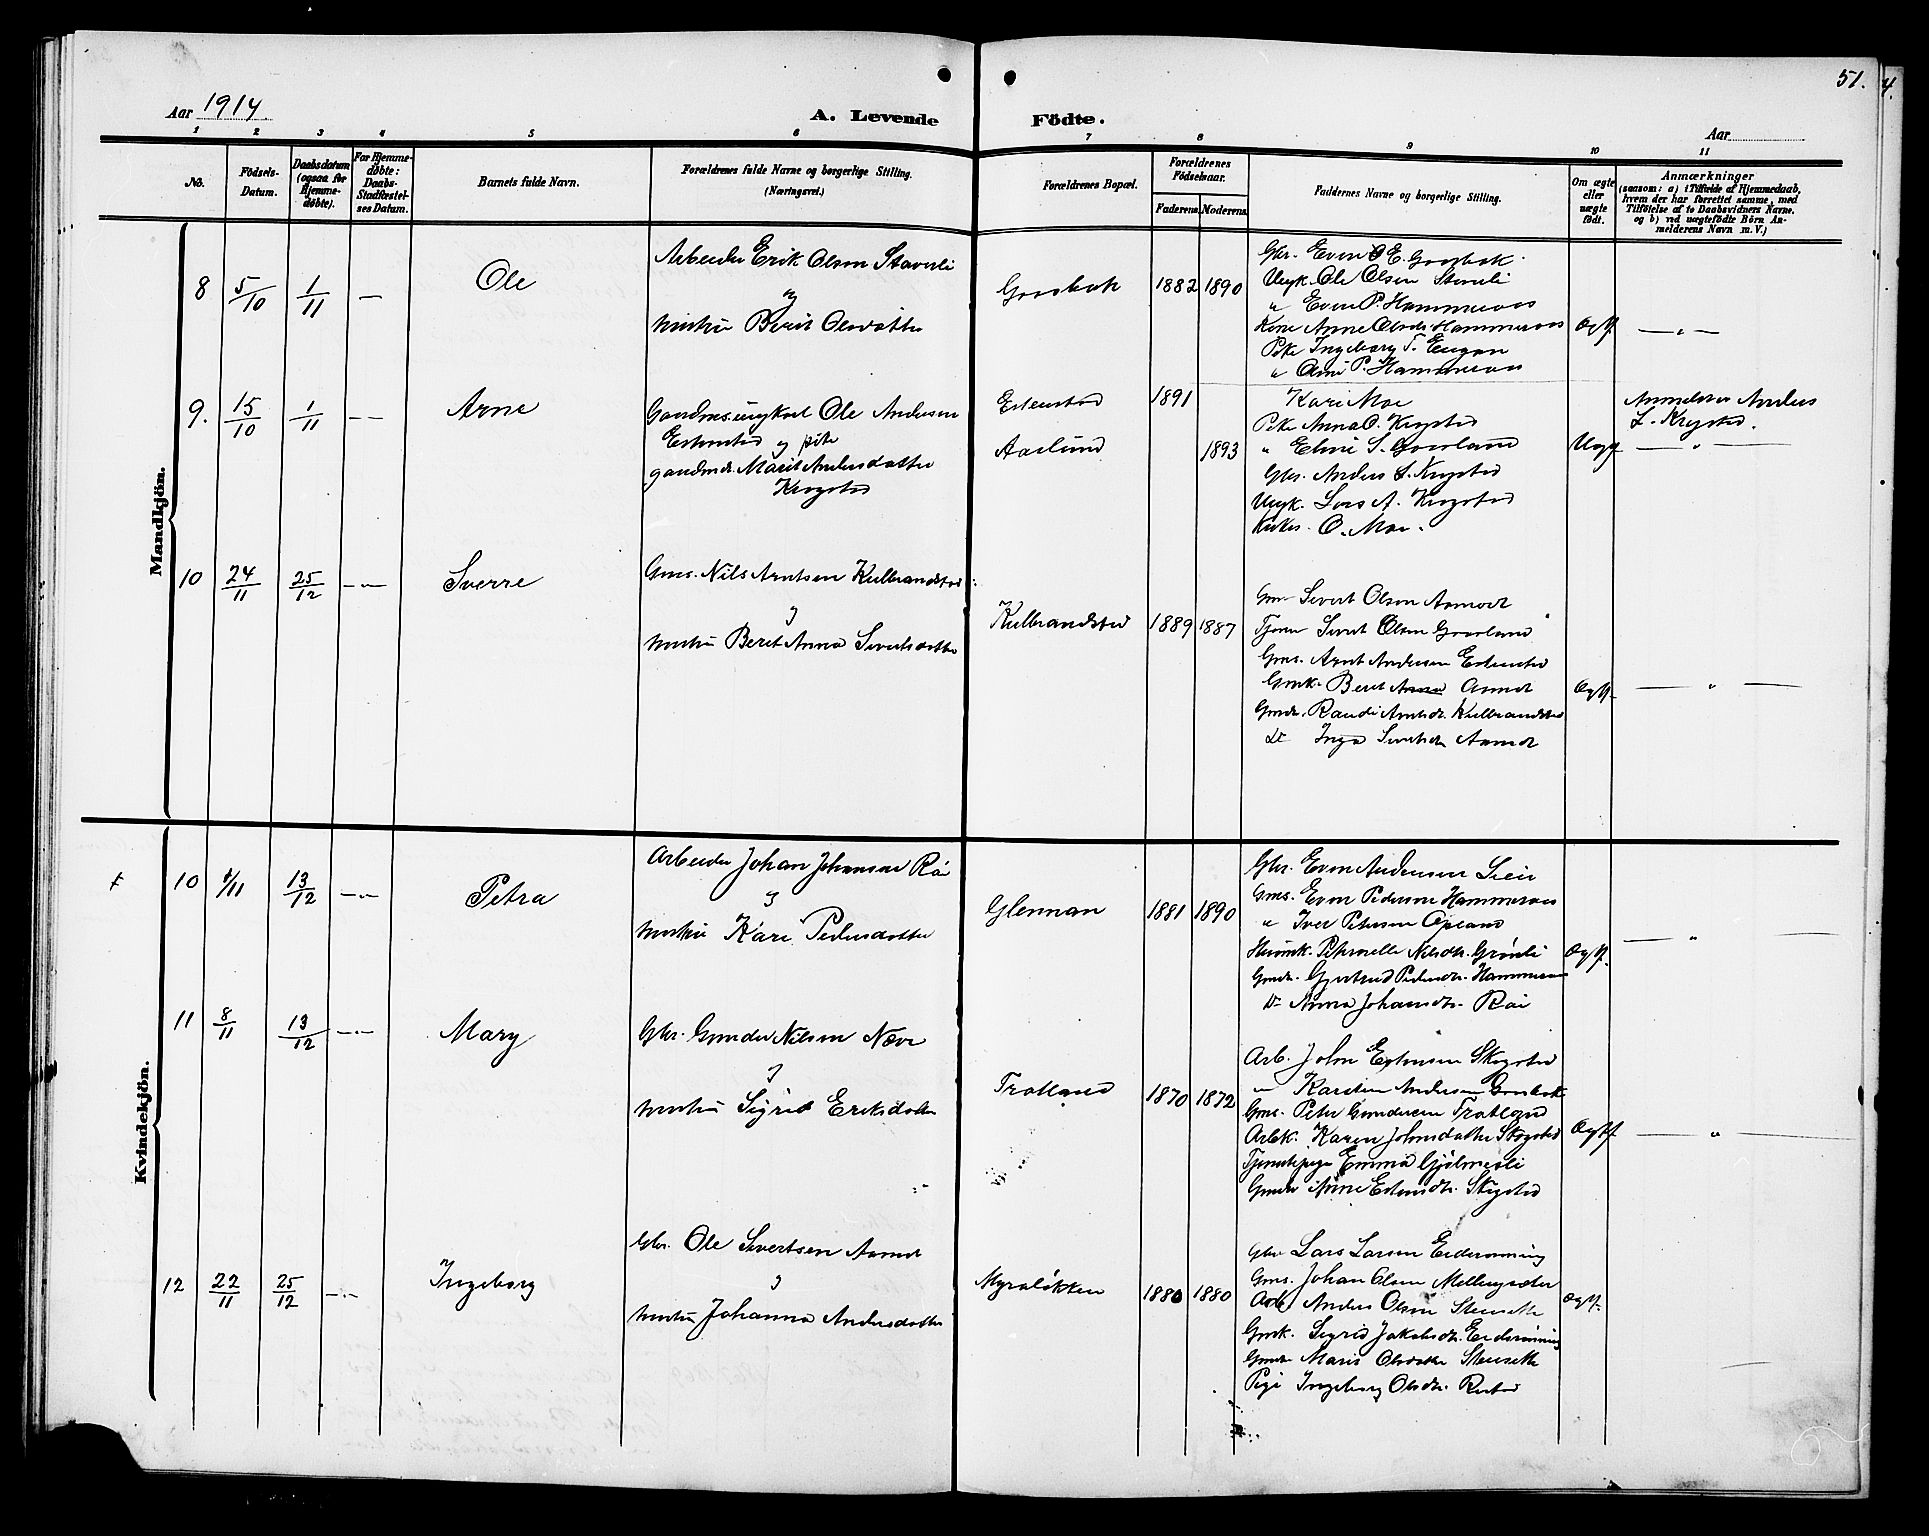 51.
4.
Aar 1914.
A. Levende Födte.
Aar
1 2 3 4 5 6 7 8 9 10 11
No.
Födsels-Datum.
Daabsdatum (ogsaa for Hjemme-døbte).
For Hjemme-døbte: Daabs-Stadfæstel-ses Datum.
Barnets fulde Navn.
Forældrenes fulde Navne og borgerlige Stilling.
(Næringsvei.)
Forældrenes Bopæl.
Forældrenes Födselsaar.
Faderens. Moderens.
Faddernes Navne og borgerlige Stilling.
Om ægte eller uægte født.
Anmærkninger
(saasom: a) i Tilfælde af Hjemmedaab,
hvem der har forrettet samme, med
Tilföielse af to Daabsvidners Navne.
og b) ved uægtefödte Börn An-
melderens Navn m. V.)
Mandkjön.
8 5/10 1/11 — Ole
Arbeider Erik Olsen Staverli
og
hustru Berit Olsdatter
Goosbak 1882 1890
Gbr. Even E. Goosbak
Ungk. Ole Olsen
" Even P. Hammeraas
Kone Anne Olsdr Hammeraas Ægte — " —
Pike Ingeborg T. Engan
" P. Hammeraas
9. 15/10 1/11 — Arne
Gaardms. ungkarl Ole Andersen
Estenstad og pike
gaardmdr. Marit Andersdatter
Krogstad
Estenstad 1891
Aaslund 1893
Kari Moe
Pike Anna O. Krogstad
" S.
Gbr. Anders L. Krogstad
Ungk. Lars A. Krogstad
O. Moe.
Anmelder Anders
L. Krogstad.
Uægte — " —
10 24/11 25/12 — Sverre
Gms. Nils Arntsen Kulbrandstad
og
hustru Beret Anna Sivertsdatter
Kulbrandstad 1889 1887
Sivert Olsen Aamodt
Sivert Olsen
Gms. Arnt Andersen Estenstad
Gmk. Beret Anna Aamot Ægte — " —
Gmdr. Randi Arntsdr. Kulbrandstad
Do Inga Sivertsdr Aamot
Kvindekjön.
10 4/11 13/12 — Petra
Arbeider Johan Johansen Røi
og
hustru Kari Pedersdatter
Glennan 1881 1890
Gbr. Even Andersen
Gms. Even Pedersen Hammeraas
" Iver Petersen Opland
Petronelle Nilsdr. Grønli Ægte — " —
Gmdr. Gjertrud Pedersdr. Hammeraas
Do Anna Johansdr. Røi
11 8/11 13/12 — Mary
Gbr. Gunder Nilsen Næve
og
hustru Sigrid Eriksdatter
Trotland 1870 1872
Arb. John Estensen Skogstad
" Karsten Andersen Goosbak
Gms. Peter Gundersen Trotland
Arbk. Karen Johnsdatter Skogstad Ægte — " —
Tjenestepige Emma Gjølmesli
Gmdr Anne Estensdr. Skogstad
12 22/11 25/12 — Ingeborg
Gbr. Ole Sivertsen Aamot
og
hustru Johanna Andersdatter
Myraløkken 1880 1880
Gbr Lars Larsen
Gms. Johan Olsen Mellingsæter
Arb Anders Olsen Stensette Ægte
Gmk. Sigrid Jakobsdr.
Gmdr Marit Olsdatter Stensette
Pige Ingeborg Olsdr.